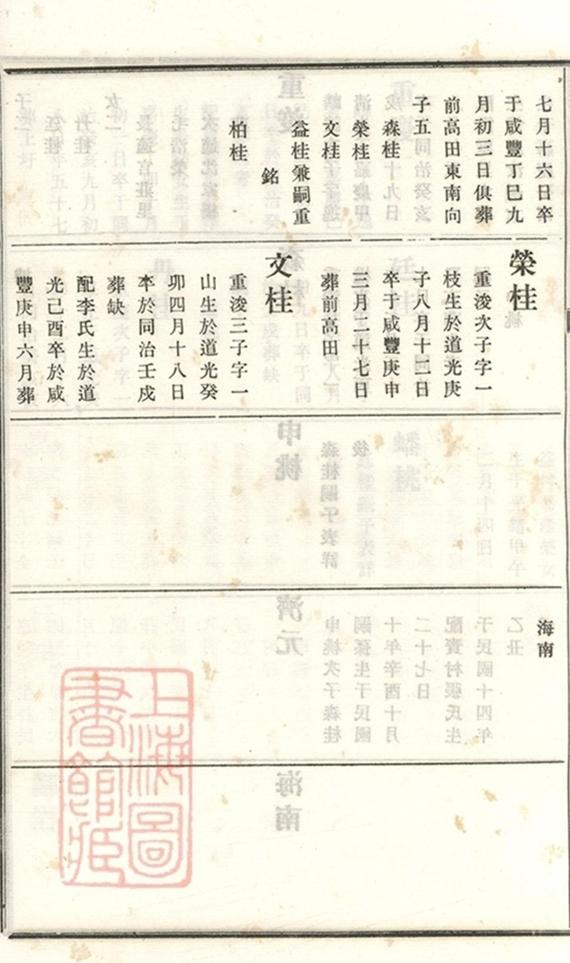 七月十六日卒
于咸豐丁巳九
月初三日俱葬
前高田東南向
子五
森桂
榮桂
文桂
益桂兼嗣重
銘
柏桂
榮桂
重浚次子字一
枝生於道光庚
子八月十二日
卒于咸豐庚申
三月二十七日
葬前高田
文桂
重浚三子字一
山生於道光癸
卯四月十八日
卒於同治壬戌
葬缺
配李氏生於道
光己酉卒於咸
豐庚申六月葬
海南
上海圖
書館藏